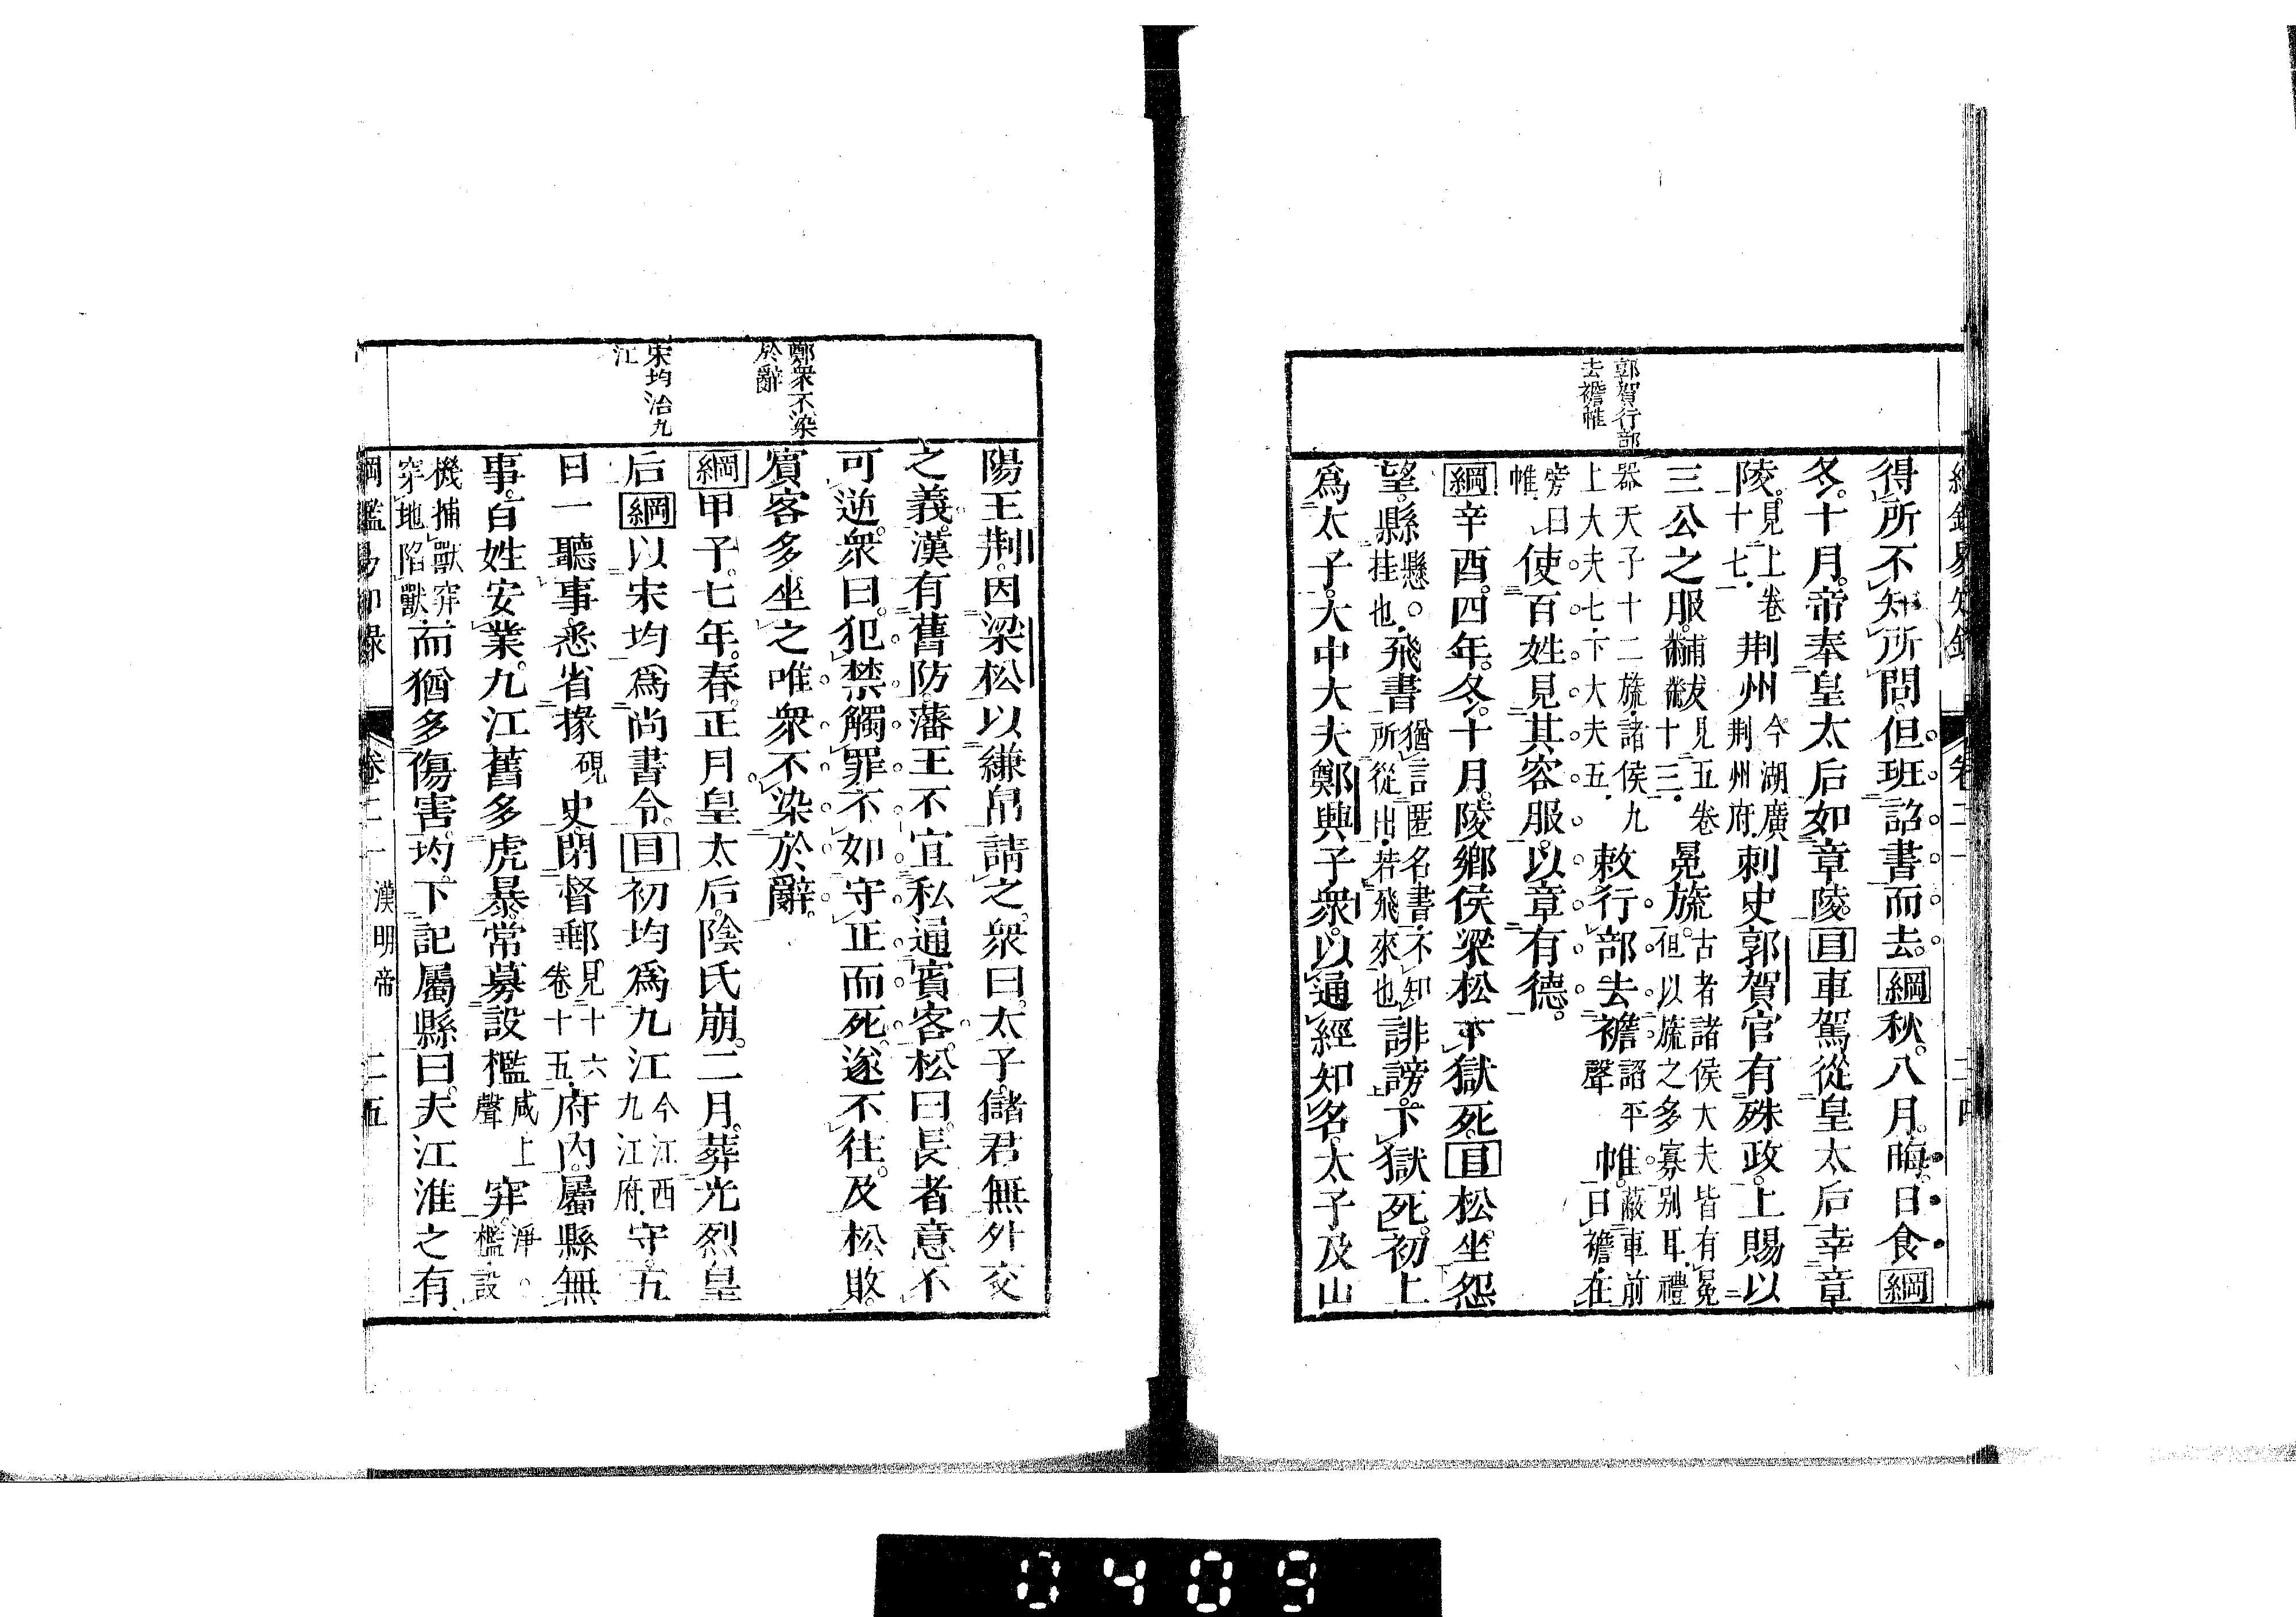 郭賀行部
去襜帷
得所不知所問但班詔書而去。綱秋八月晦日食綱
冬十月帝奉皇太后如章陵。目車駕從皇太后幸章
陵。見上卷十七。荆州今湖廣荆州府。刺史郭賀官有殊政。上賜以
三公之服。黼黻見五卷十三。冕旒。古者諸侯大夫皆有冕但以旒之多寡別耳。禮
器天子十二旒。諸侯九上大夫七。下大夫五。敕行部去襜詔平聲帷。蔽車前曰襜。在
旁曰帷。使百姓見其容服。以章有德。
綱辛酉。四年。冬。十月。陵鄉侯梁松下獄死。目松坐怨
望。縣懸。挂也。飛書猶言匿名書。不知所從出。若飛來也誹謗。下獄死。初上
爲太子。大中大夫鄭興子衆。以通經知名。太子及山
鄭衆不染
於辭
宋均治九
江
陽王荆。因梁松以縑帛請之。衆曰。太子儲君無外交
之義。漢有舊防。藩王不宜私通賓客。松曰。長者意不
可逆。衆曰。犯禁觸罪。不如守正而死。遂不往。及松敗。
賓客多坐之唯衆不染於辭。
綱甲子。七年。春。正月皇太后陰氏崩。二月。葬光烈皇
后綱以宋均爲尚書令。目初均爲九江今江西九江府。守。五
日一聽事。悉省掾硯史。閉督郵。見十六卷十五。府內。屬縣無
事。百姓安業。九江舊多虎暴。常募設檻咸上聲穽。淨。檻設
機捕獸穽穿地陷獸。而猶多傷害。均下記屬縣曰。夫江淮之有
綱鑑易知錄 卷二十 漢明帝 二五